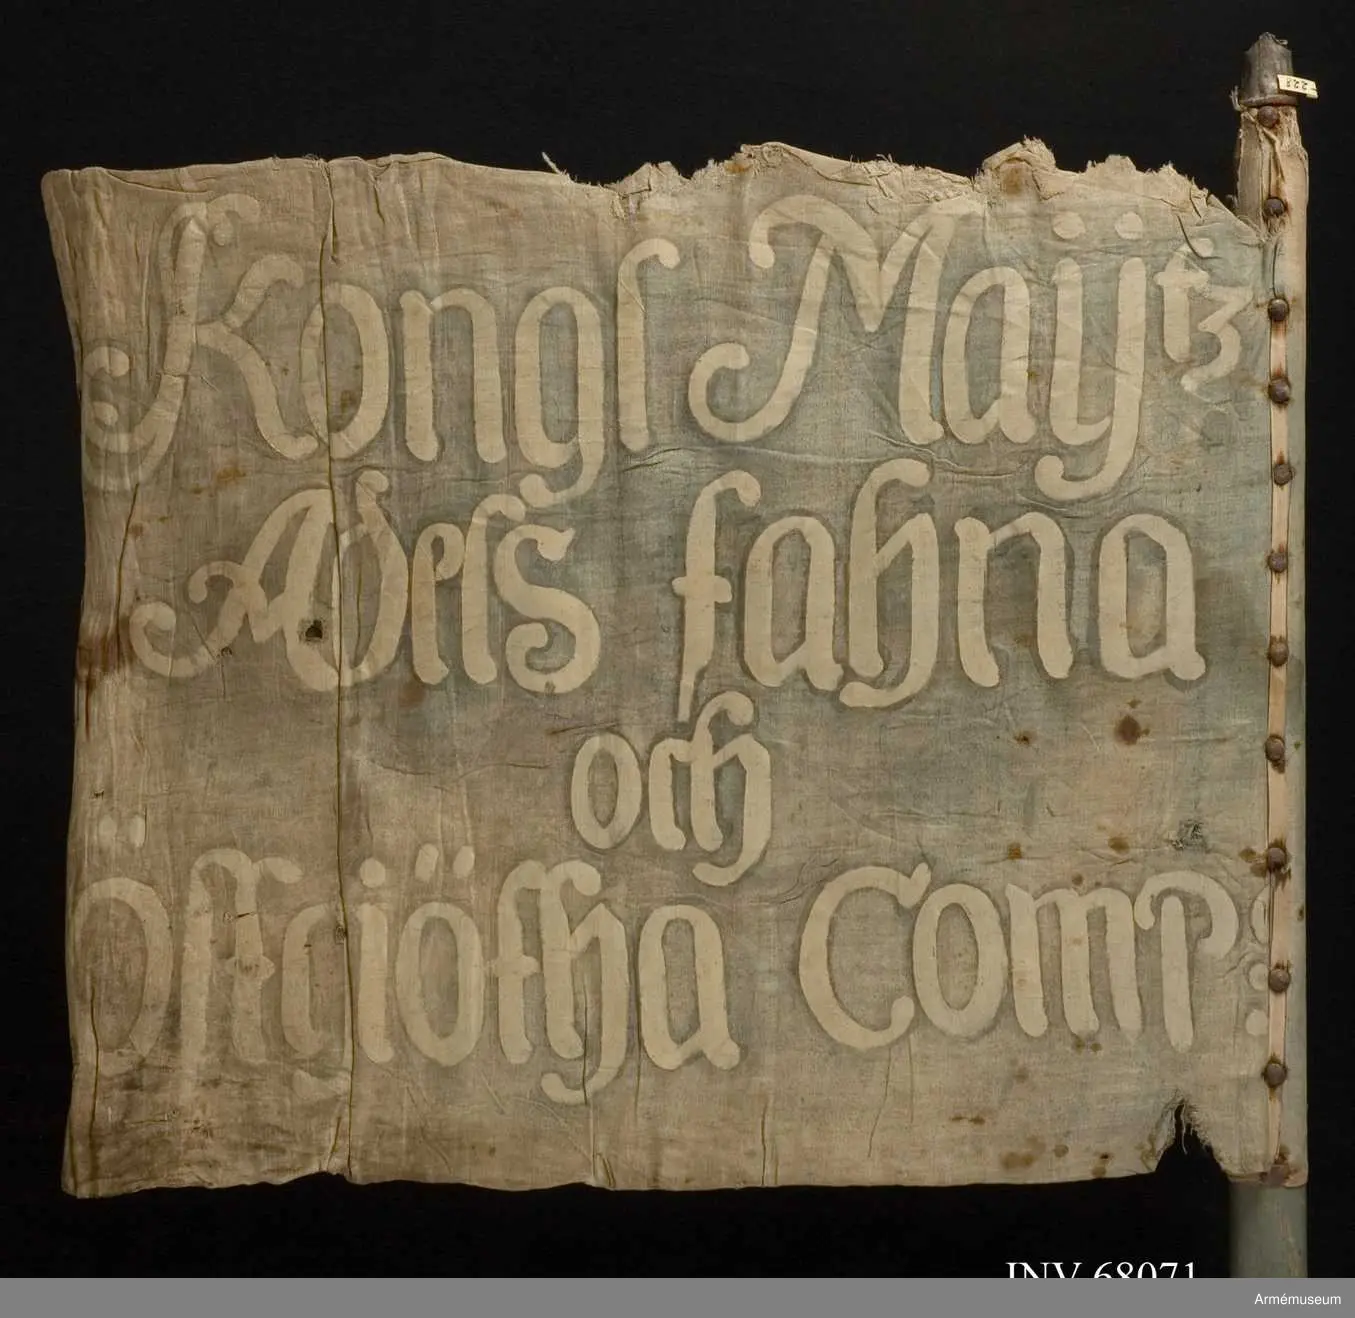 228
Kongl Maÿtz
Adels fahna
och
Östgiötha Comp:
INV 68071
Armémuseum